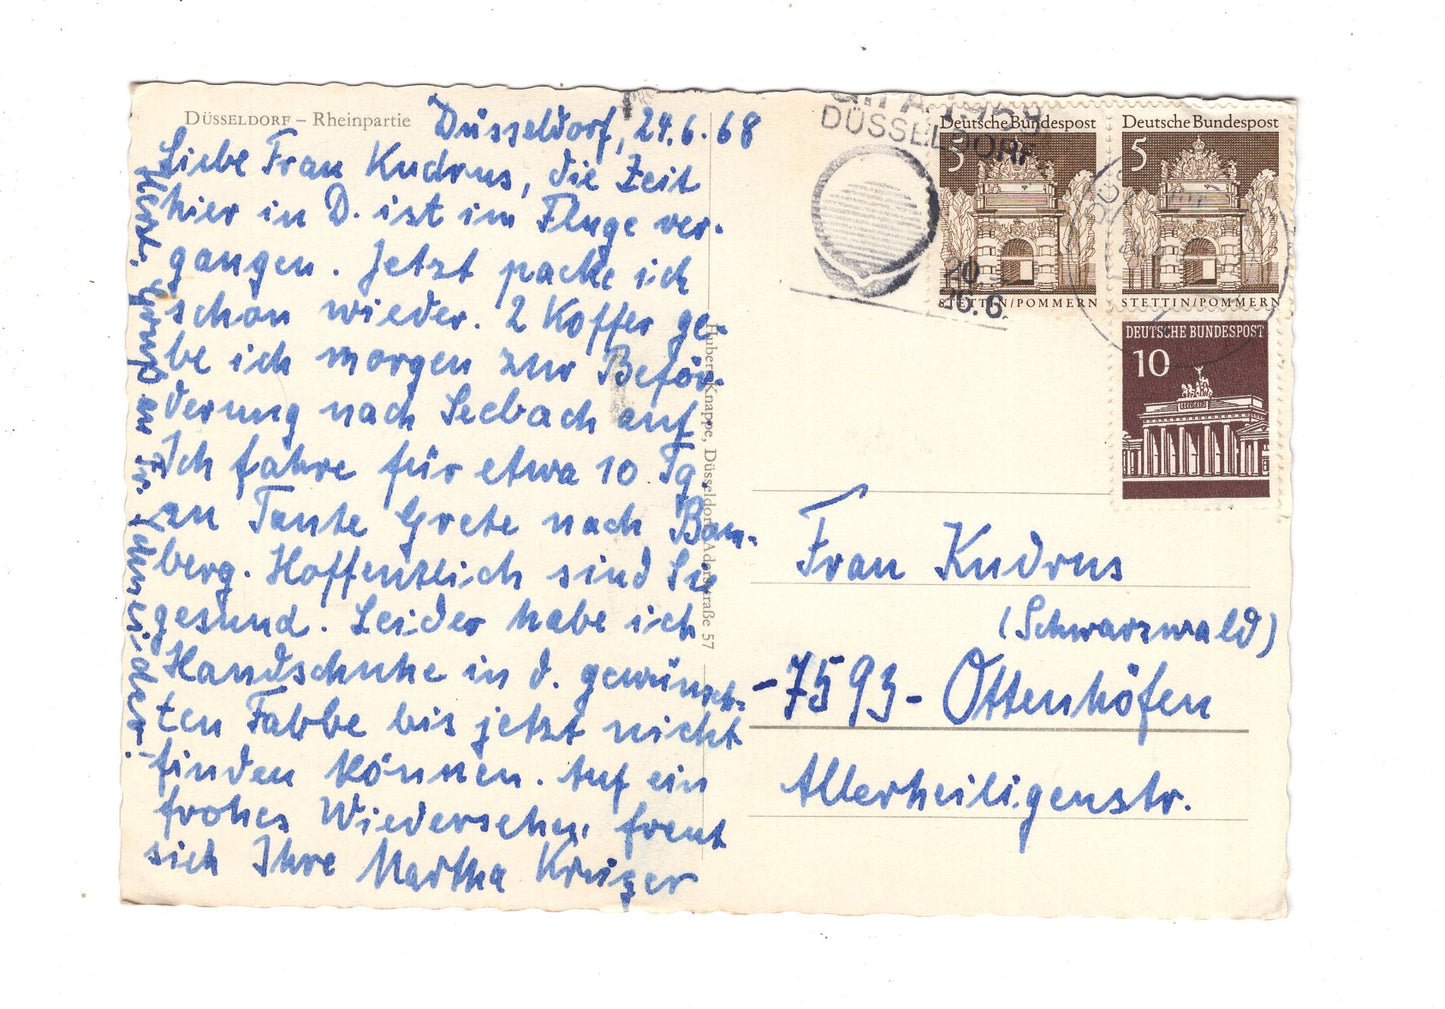 DÜSSELDORF – Rheinpartie
Düsseldorf, 24.6.68
Liebe Frau Kudrus, die Zeit
hier in D. ist im Fluge ver-
gangen. Jetzt packe ich
schon wieder. 2 Koffer ge-
be ich morgen zur Beför-
derung nach Seebach auf
Ich fahre für etwa 10 Tg.
zu Tante Grete nach Bam-
berg. Hoffentlich sind Sie
gesund. Leider habe ich
Handschuhe in d. gewünsch-
ten Fabbe bis jetzt nicht
finden können. Auf ein
frohes Wiedersehen freut
sich Ihre Martha Krüger
Herzl. Gruß an Fr.
Hubert Knappe, Düsseldorf, Adersstraße 57
DÜSSELDORF
Deutsche Bundespost
5
STETTIN/POMMERN
Deutsche Bundespost
5
STETTIN/POMMERN
DEUTSCHE BUNDESPOST
10
Frau Kudrus
(Schwarzwald)
-7593- Ottenhöfen
Allerheiligenstr.